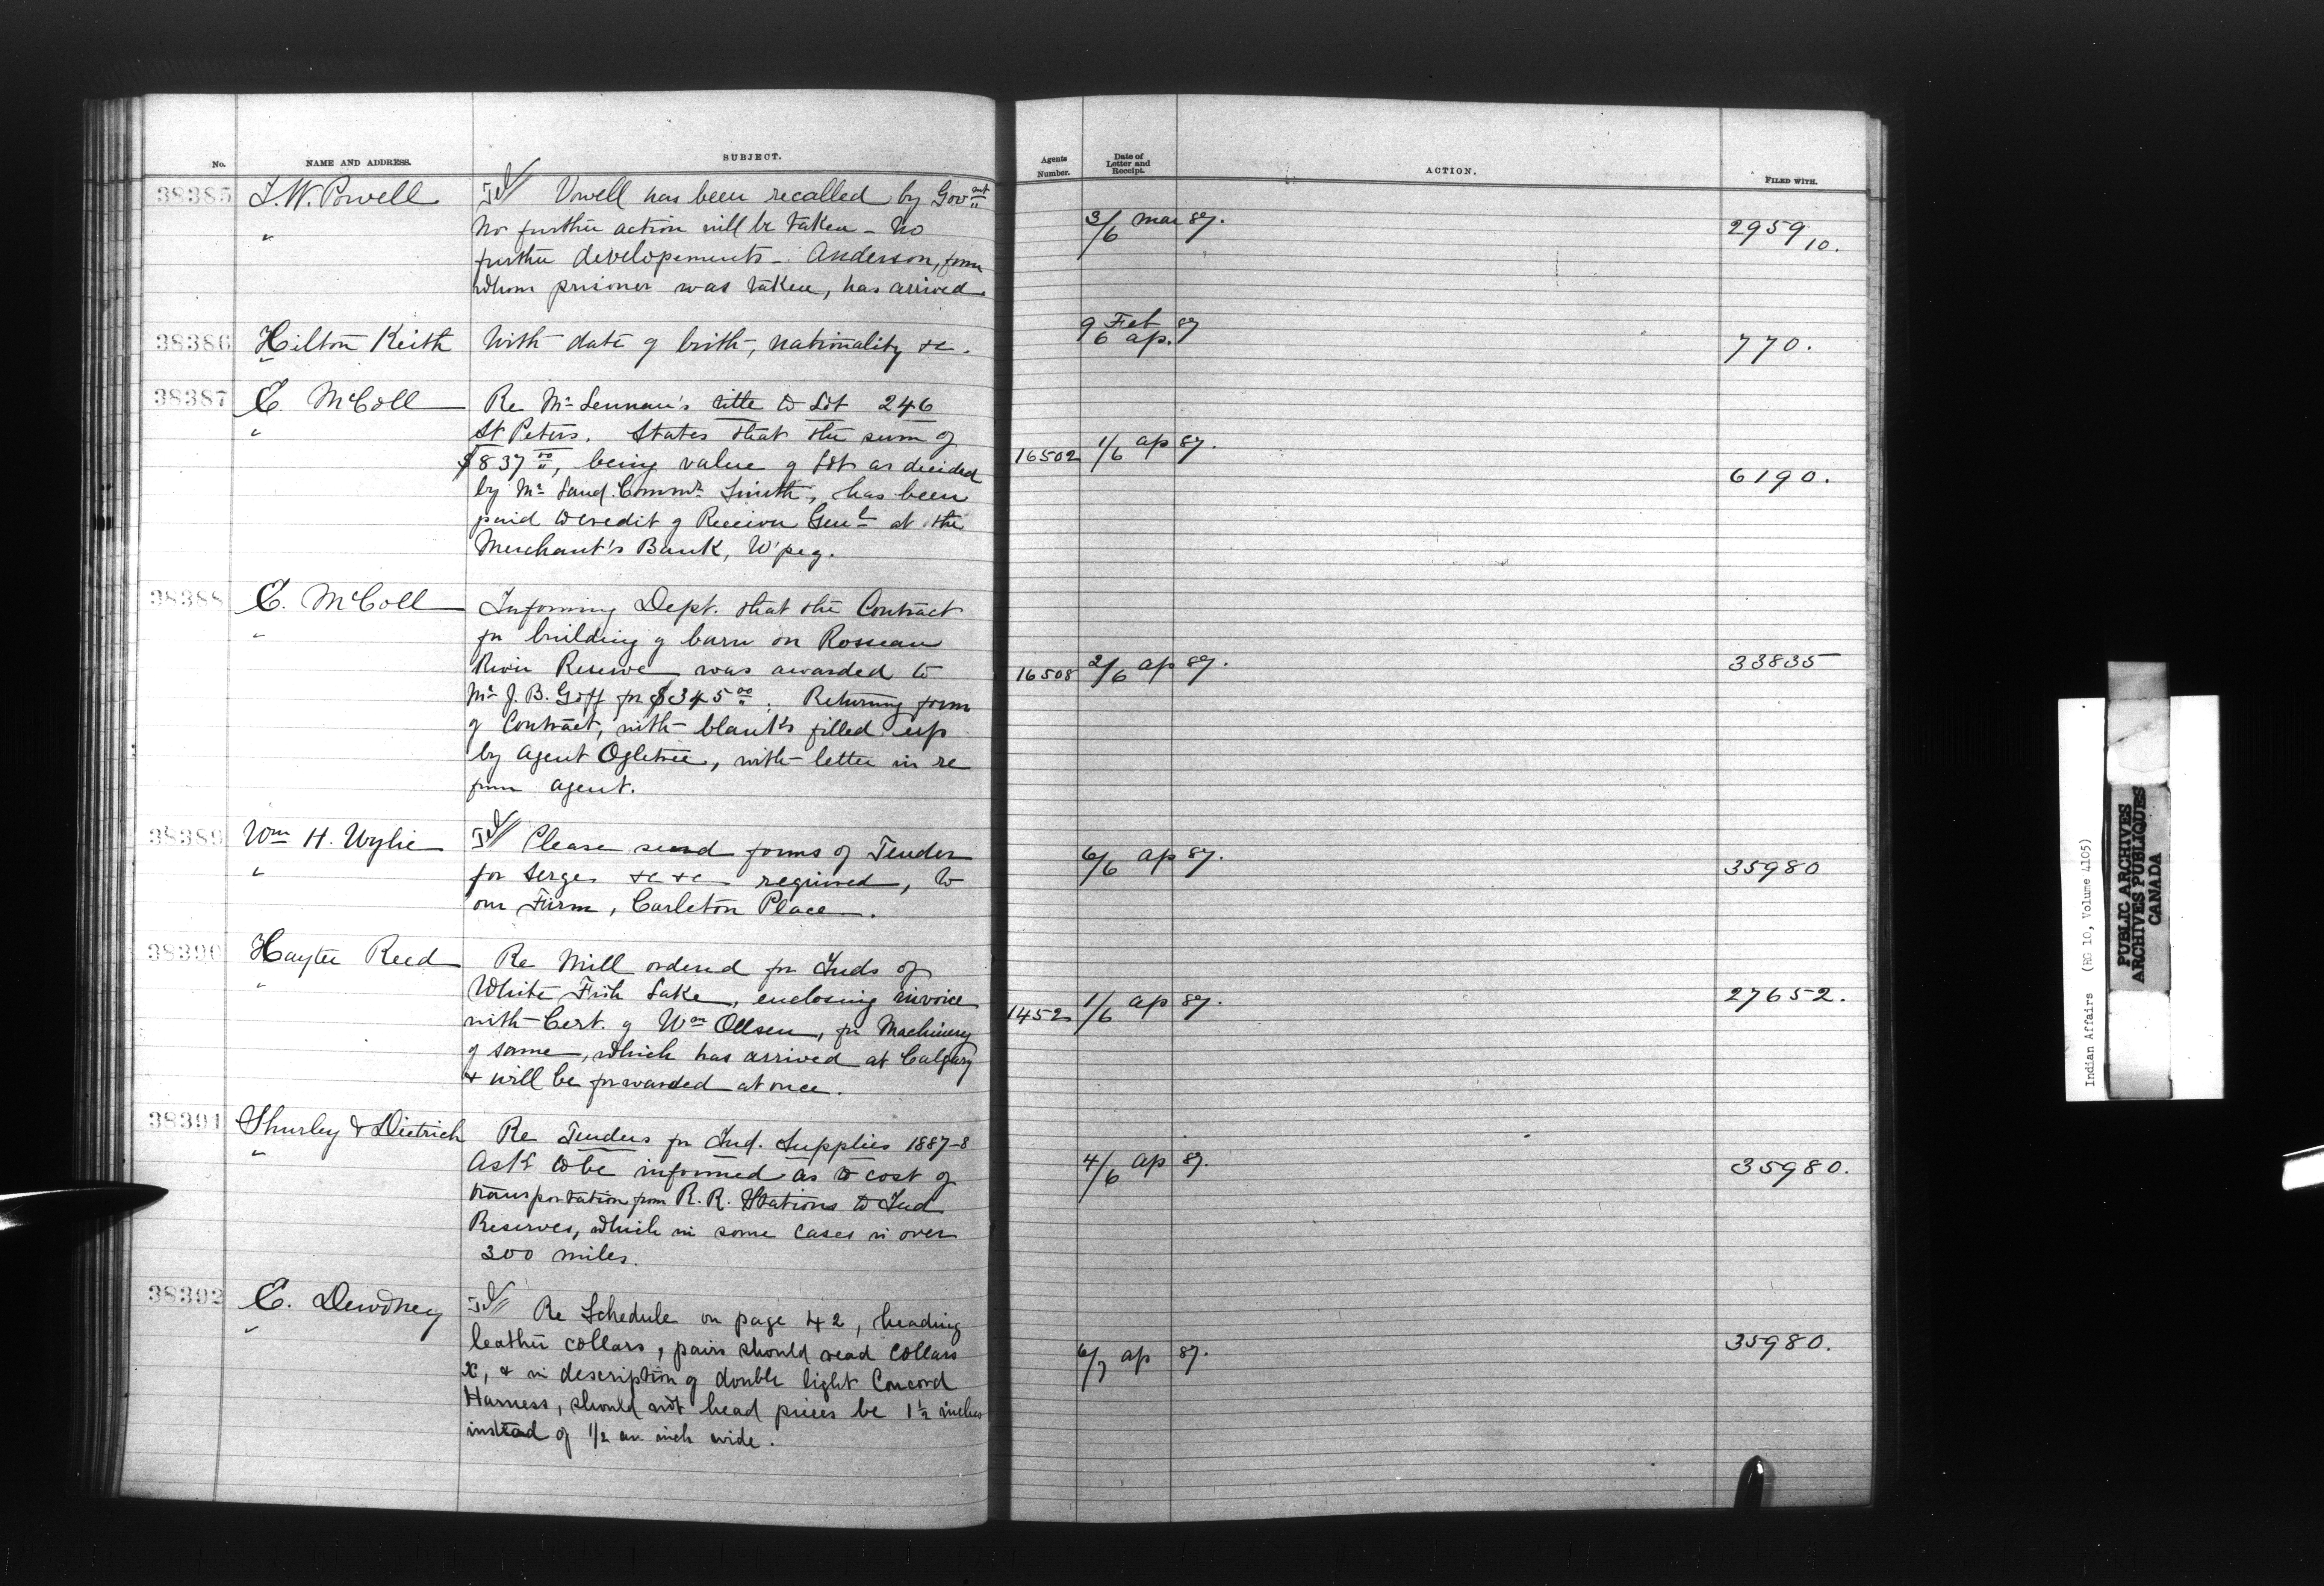 No.
NAME AND ADDRESS.
SUBJECT.
Agents Number.
Date of Letter and Receipt.
ACTION.
FILED WITH.
38385
I.W. Powell
"
Tel Vowell has been recalled by Govmt
No further action will be taken - No
further developements - Anderson, from
whom prisoner was taken, has arrived
3/6 Mar 87.
2959/10.
38386
Hilton Keith
"
With date of birth, nationality &c.
9 Feb 87
6 ap.
770.
38387
E. McColl
"
Re Mr Lennan's title to Lot 246
St Peters. States that the sum of
$837 00, being value of Lot as decided
by Mr Land Commr Smith, has been
paid to credit of Receiver Genl at the
Merchant's Bank, W'peg.
16502
1/6 ap 87.
6190.
38388
E. McColl
"
Informing Dept. that the Contract
for building of barn on Roseau
River Reserve was awarded to
Mr J. B. Goff for $345 00. Returning form
of Contract, with blanks filled up
by Agent Ogletree, with letter in re
from Agent.
16508
2/6 ap 87.
33835
38389
Wm H. Wylie
"
Tel Please send forms of Tender
for Serges &c &c required, to
our Firm, Carleton Place.
6/6 ap 87.
35980
38390
Hayter Reed
"
Re Mill ordered for Inds of
White Fish Lake, enclosing invoice
with Cert. of Wm Ollsen, for Machinery
of same, which has arrived at Calgary
& will be forwarded at once.
1452
1/6 ap 87.
27652.
38391
Shurley & Dietrich
"
Re Tenders for Ind. Supplies 1887-8
Ask to be informed as to cost of
transportation from R. R. Stations to Ind
Reserves, which in some cases is over
300 miles.
4/6 ap 87.
35980.
38392
E. Dewdney
"
Tel Re Schedule on page 42, heading
leather collars, pairs should read collars
&c, & in description of double light Concord
Harness, should not head pieces be 1½ inches
instead of 1/2 an inch wide.
6/7 ap 87.
35980.
Indian Affairs (RG 10, Volume 4105)
PUBLIC ARCHIVES
ARCHIVES PUBLIQUES
CANADA